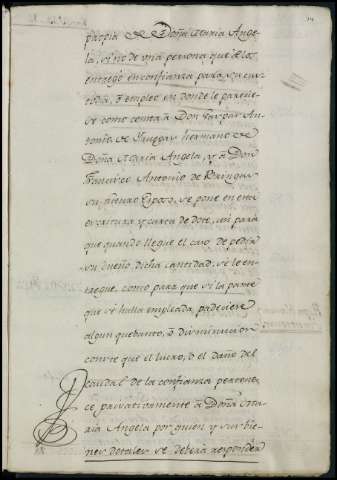 propia de Doña Maria Ange-
la, sino de una persona que se los
entregó en confianza para su cus-
todia, y empleo en donde le parecie-
se como consta à Don Gaspar An-
tonio de hermano de
Doña Maria Angela, y à Don
Francisco Antonio de
su futuro Esposo, se pone en esta
escritura y carta de dote, asi para
que quando llegue el caso de pedir
su dueño dicha cantidad, se le en-
tregue, como para que si la parte
que se halla empleada, padeciere
algun quebanto, ò disminucion
conste que el lucro, ò el daño del
caudal de la confianza pertene-
ce privativamente à Doña Ma-
ria Angela por quien y sus bie-
nes dotales se deberà responder